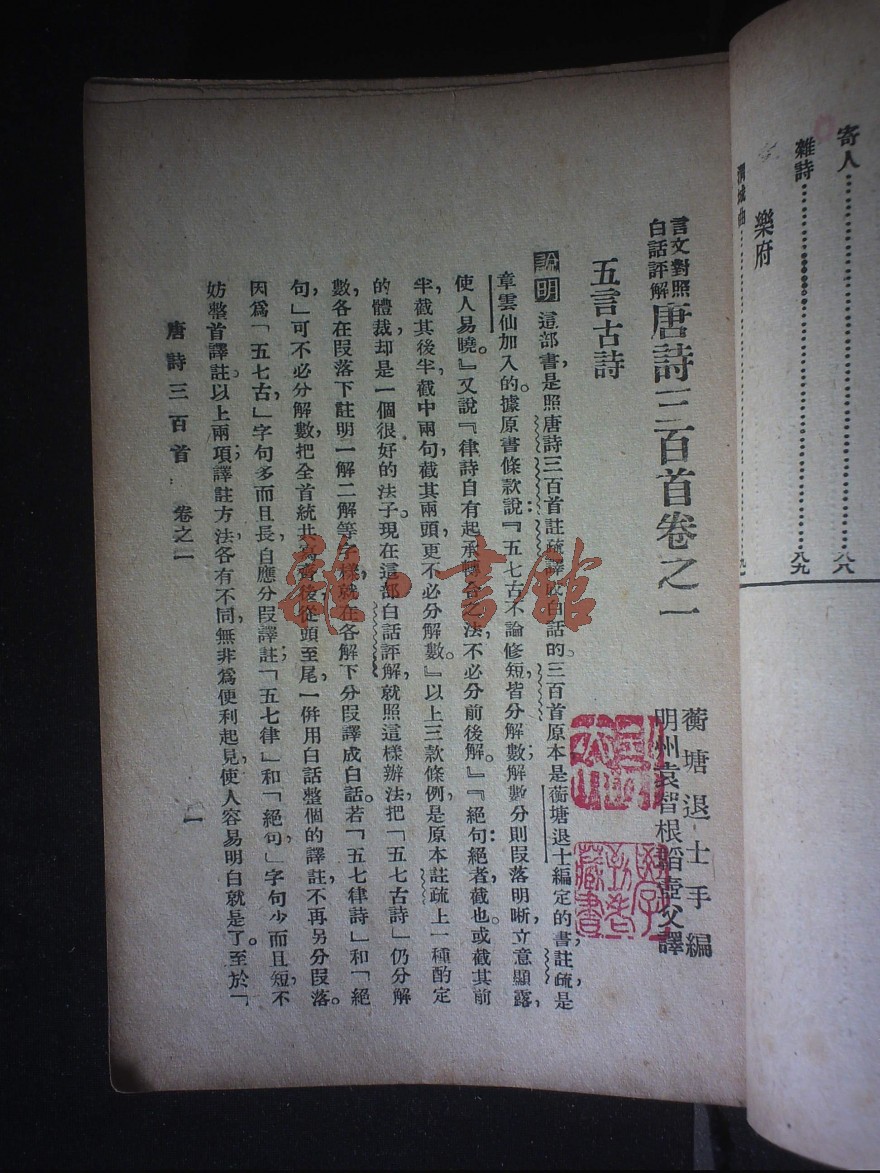 寄人……………………八八
雜詩……………………八九
樂府
言文對照
白話評解
唐詩三百首卷之一
蘅塘退士手編
明州袁智根韜壺父譯
五言古詩
說明 這部書，是照唐詩三百首註疏譯成白話的。三百首原本是蘅塘退士編定的書，註疏是
章雲仙加入的。據原書條款說：『五七古不論修短，皆分解數；解數分則段落明晰，立意顯露，
使人易曉。』又說『律詩自有起承轉合之法，不必分前後解。』『絕句：絕者，截也。或截其前
半，截其後半，截中兩句，截其兩頭，更不必分解數。』以上三款條例，是原本註疏上一種酌定
的體裁，却是一個很好的法子。現在這部白話評解，就照這樣辦法，把「五七古詩」仍分解
數，各在段落下註明一解二解等字樣，就在各解下分段譯成白話。若「五七律詩」和「絕
句，」可不必分解數，把全首統共寫齊後，從頭至尾，一併用白話整個的譯註，不再另分段落。
因爲「五七古，」字句多而且長，自應分段譯註；「五七律」和「絕句，」字句少而且短，不
妨整首譯註。以上兩項譯註方法，各有不同，無非爲便利起見，使人容易明白就是了。至於「
唐詩三百首 卷之一
一
龍一書館